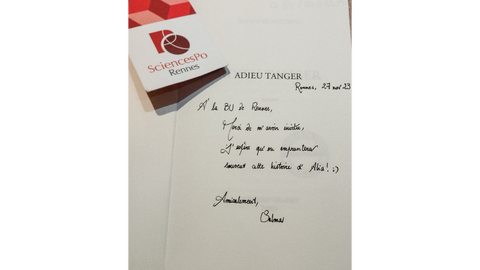 SciencesPo
Rennes
ADIEU TANGER
Rennes, 27 nov 23
A' la BU de Rennes,
Merci de m'avoir invitée,
J'espère qu'on empruntera
souvent cette histoire d'Alia! :)
Amicalement,
Salma